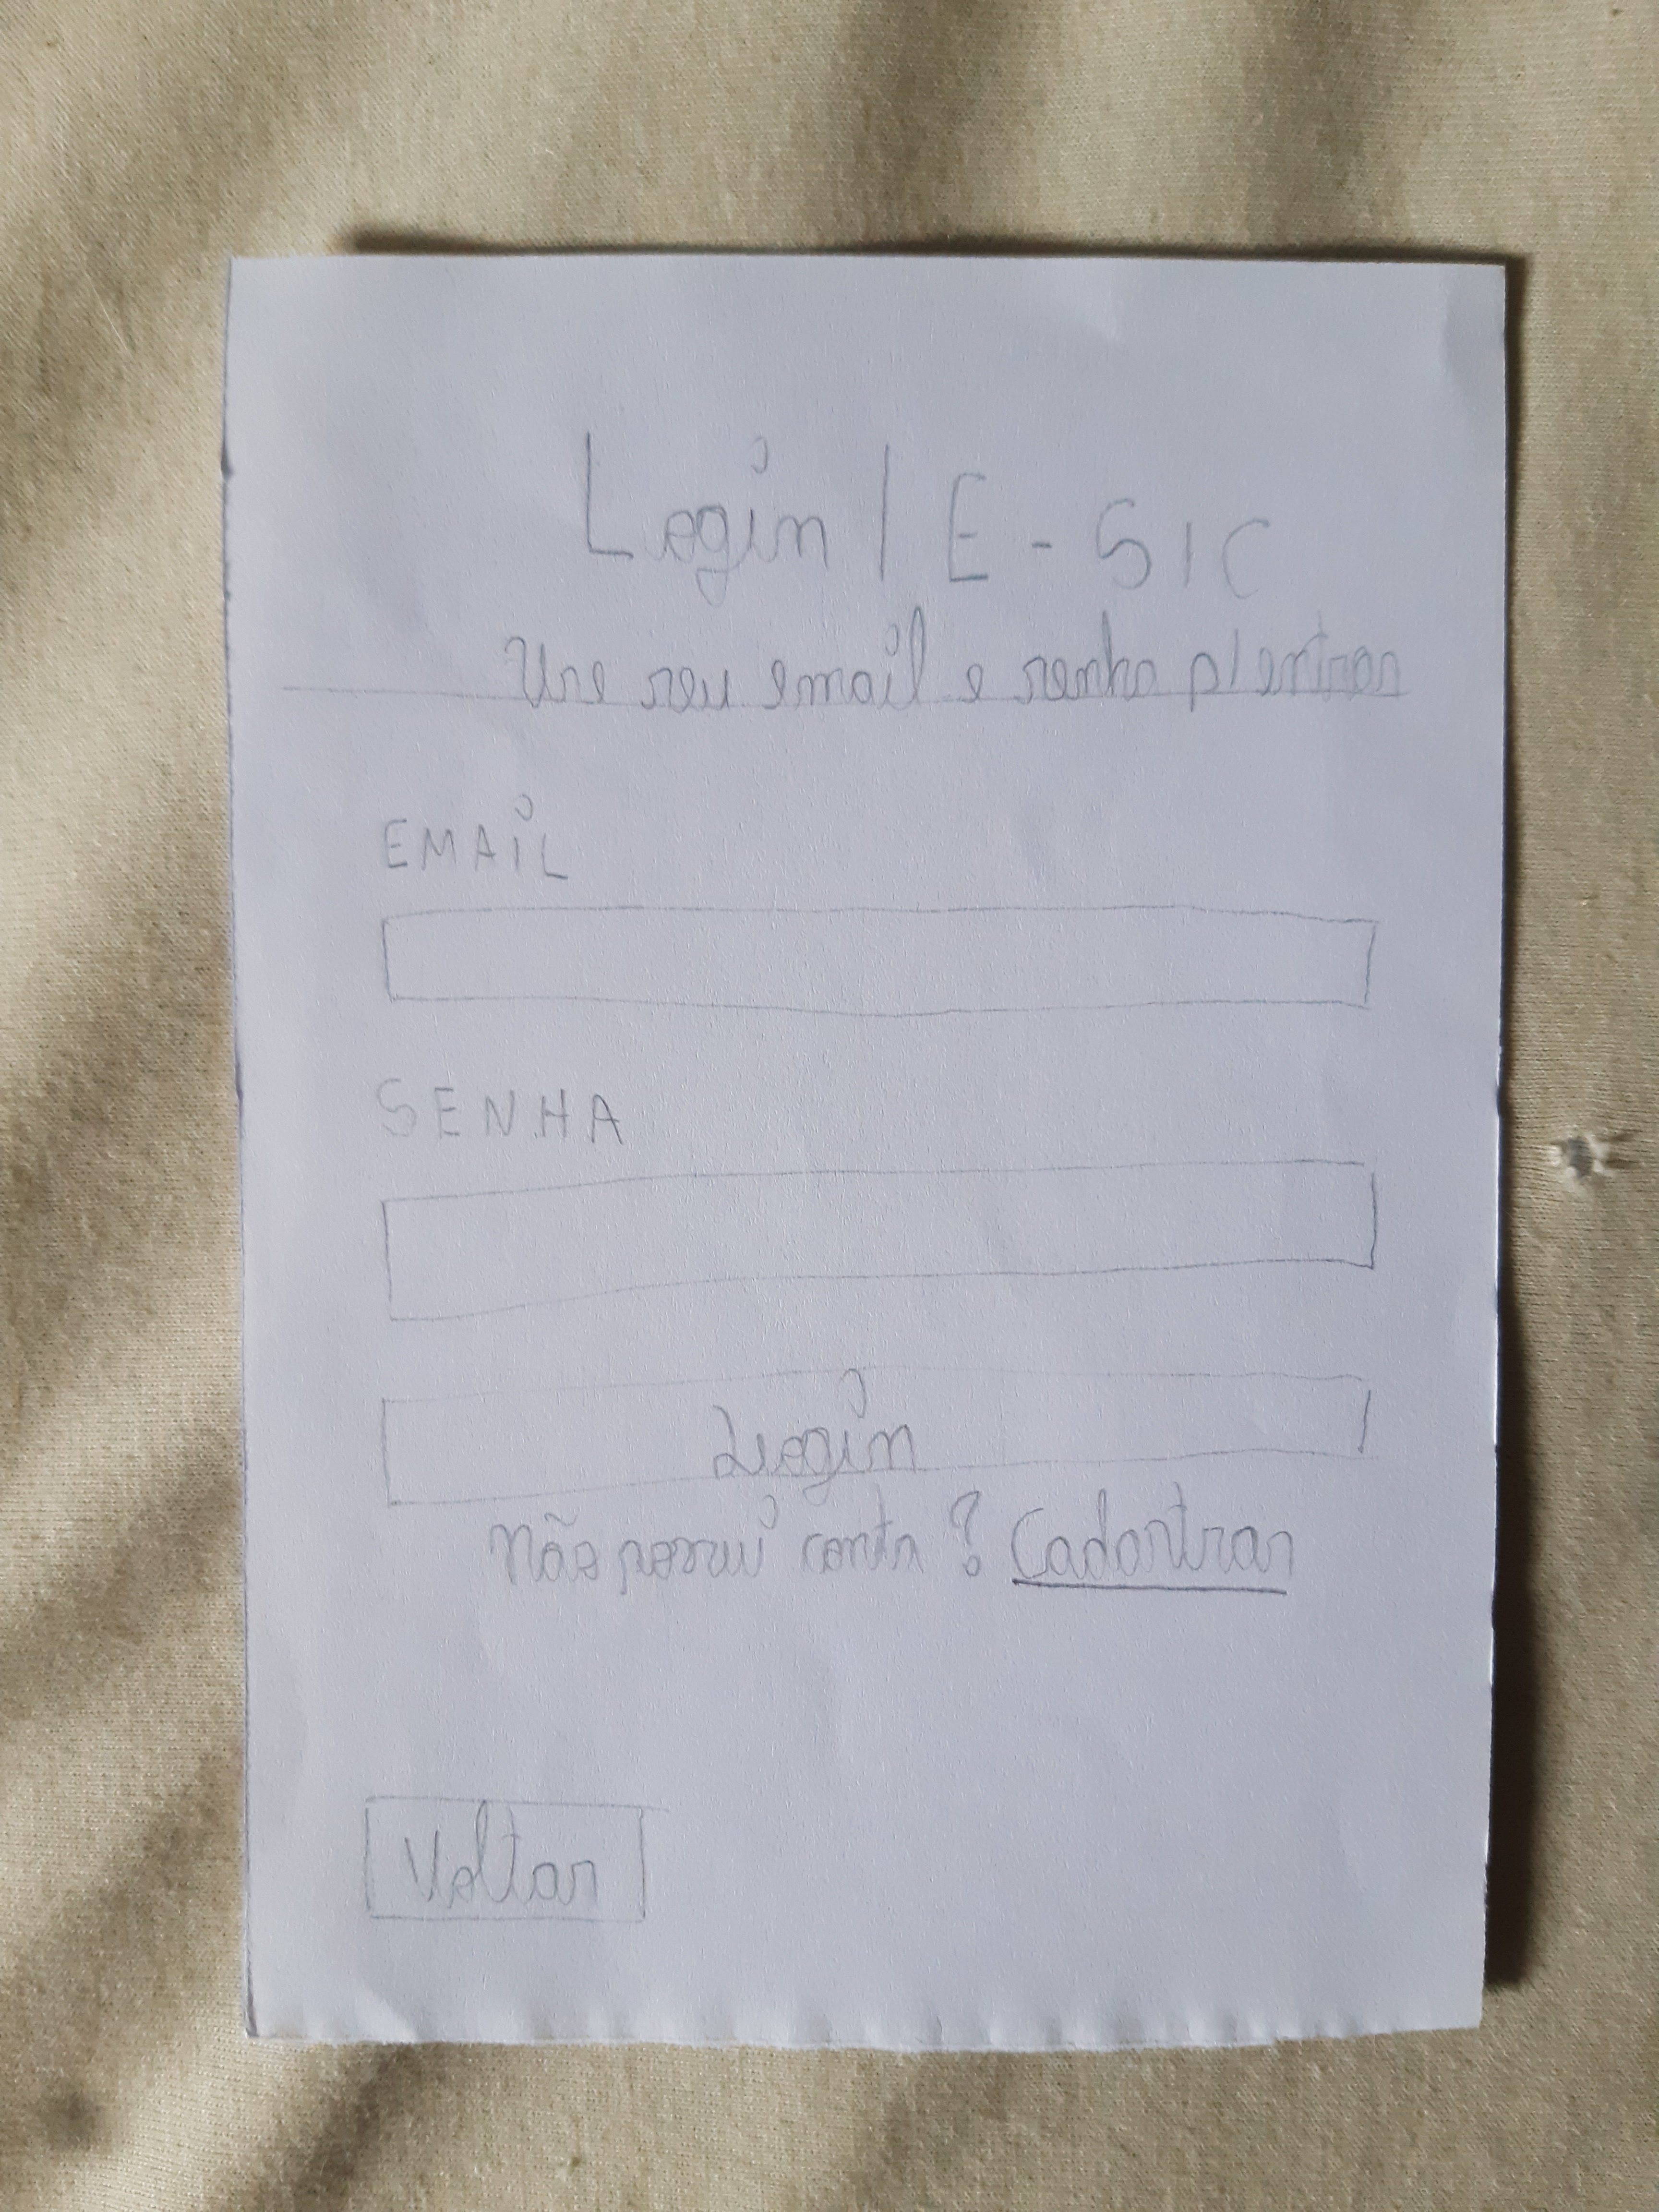 Login | E-SIC
Use seu email e senha p/ entrar
EMAIL
SENHA
Login
Não possui conta? Cadastrar
Voltar